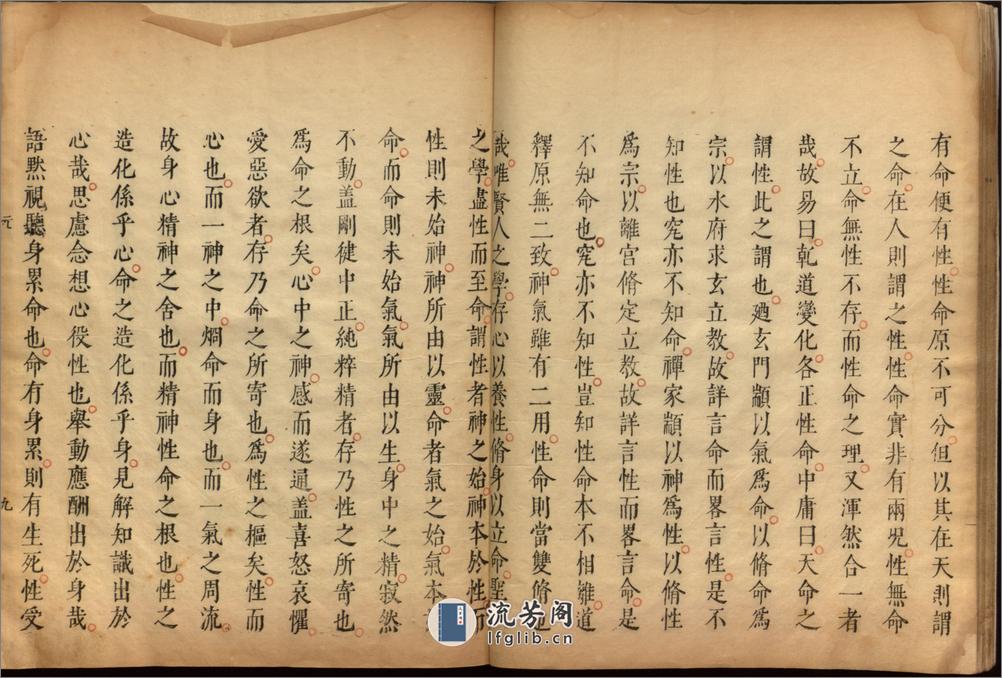 有命便有性性命原不可分但以其在天則謂
之命在人則謂之性性命實非有兩况性無命
不立命無性不存而性命之理又渾然合一者
哉故易曰乾道變化各正性命中庸曰天命之
謂性此之謂也廼玄門顓以氣爲命以脩命爲
宗以水府求玄立教故詳言命而畧言性是不
知性也究亦不知命禪家顓以神爲性以脩性
爲宗以離宮脩定立教故詳言性而畧言命是
不知命也究亦不知性豈知性命本不相離道
釋原無二致神氣雖有二用性命則當雙脩也
哉唯賢人之學存心以養性脩身以立命聖
之學盡性而至命謂性者神之始神本於性而
性則未始神神所由以靈命者氣之始氣本
命而命則未始氣氣所由以生身中之精寂然
不動盖剛健中正純粹精者存乃性之所寄也
爲命之根矣心中之神感而遂通盖喜怒哀懼
愛惡欲者存乃命之所寄也爲性之樞矣性而
心也而一神之中烱命而身也而一氣之周流
故身心精神之舍也而精神性命之根也性之
造化係乎心命之造化係乎身見解知識出於
心哉思慮念想心役性也舉動應酬出於身哉
語默視聽身累命也命有身累則有生死性受
元
九
流芳阁
lfglib.cn